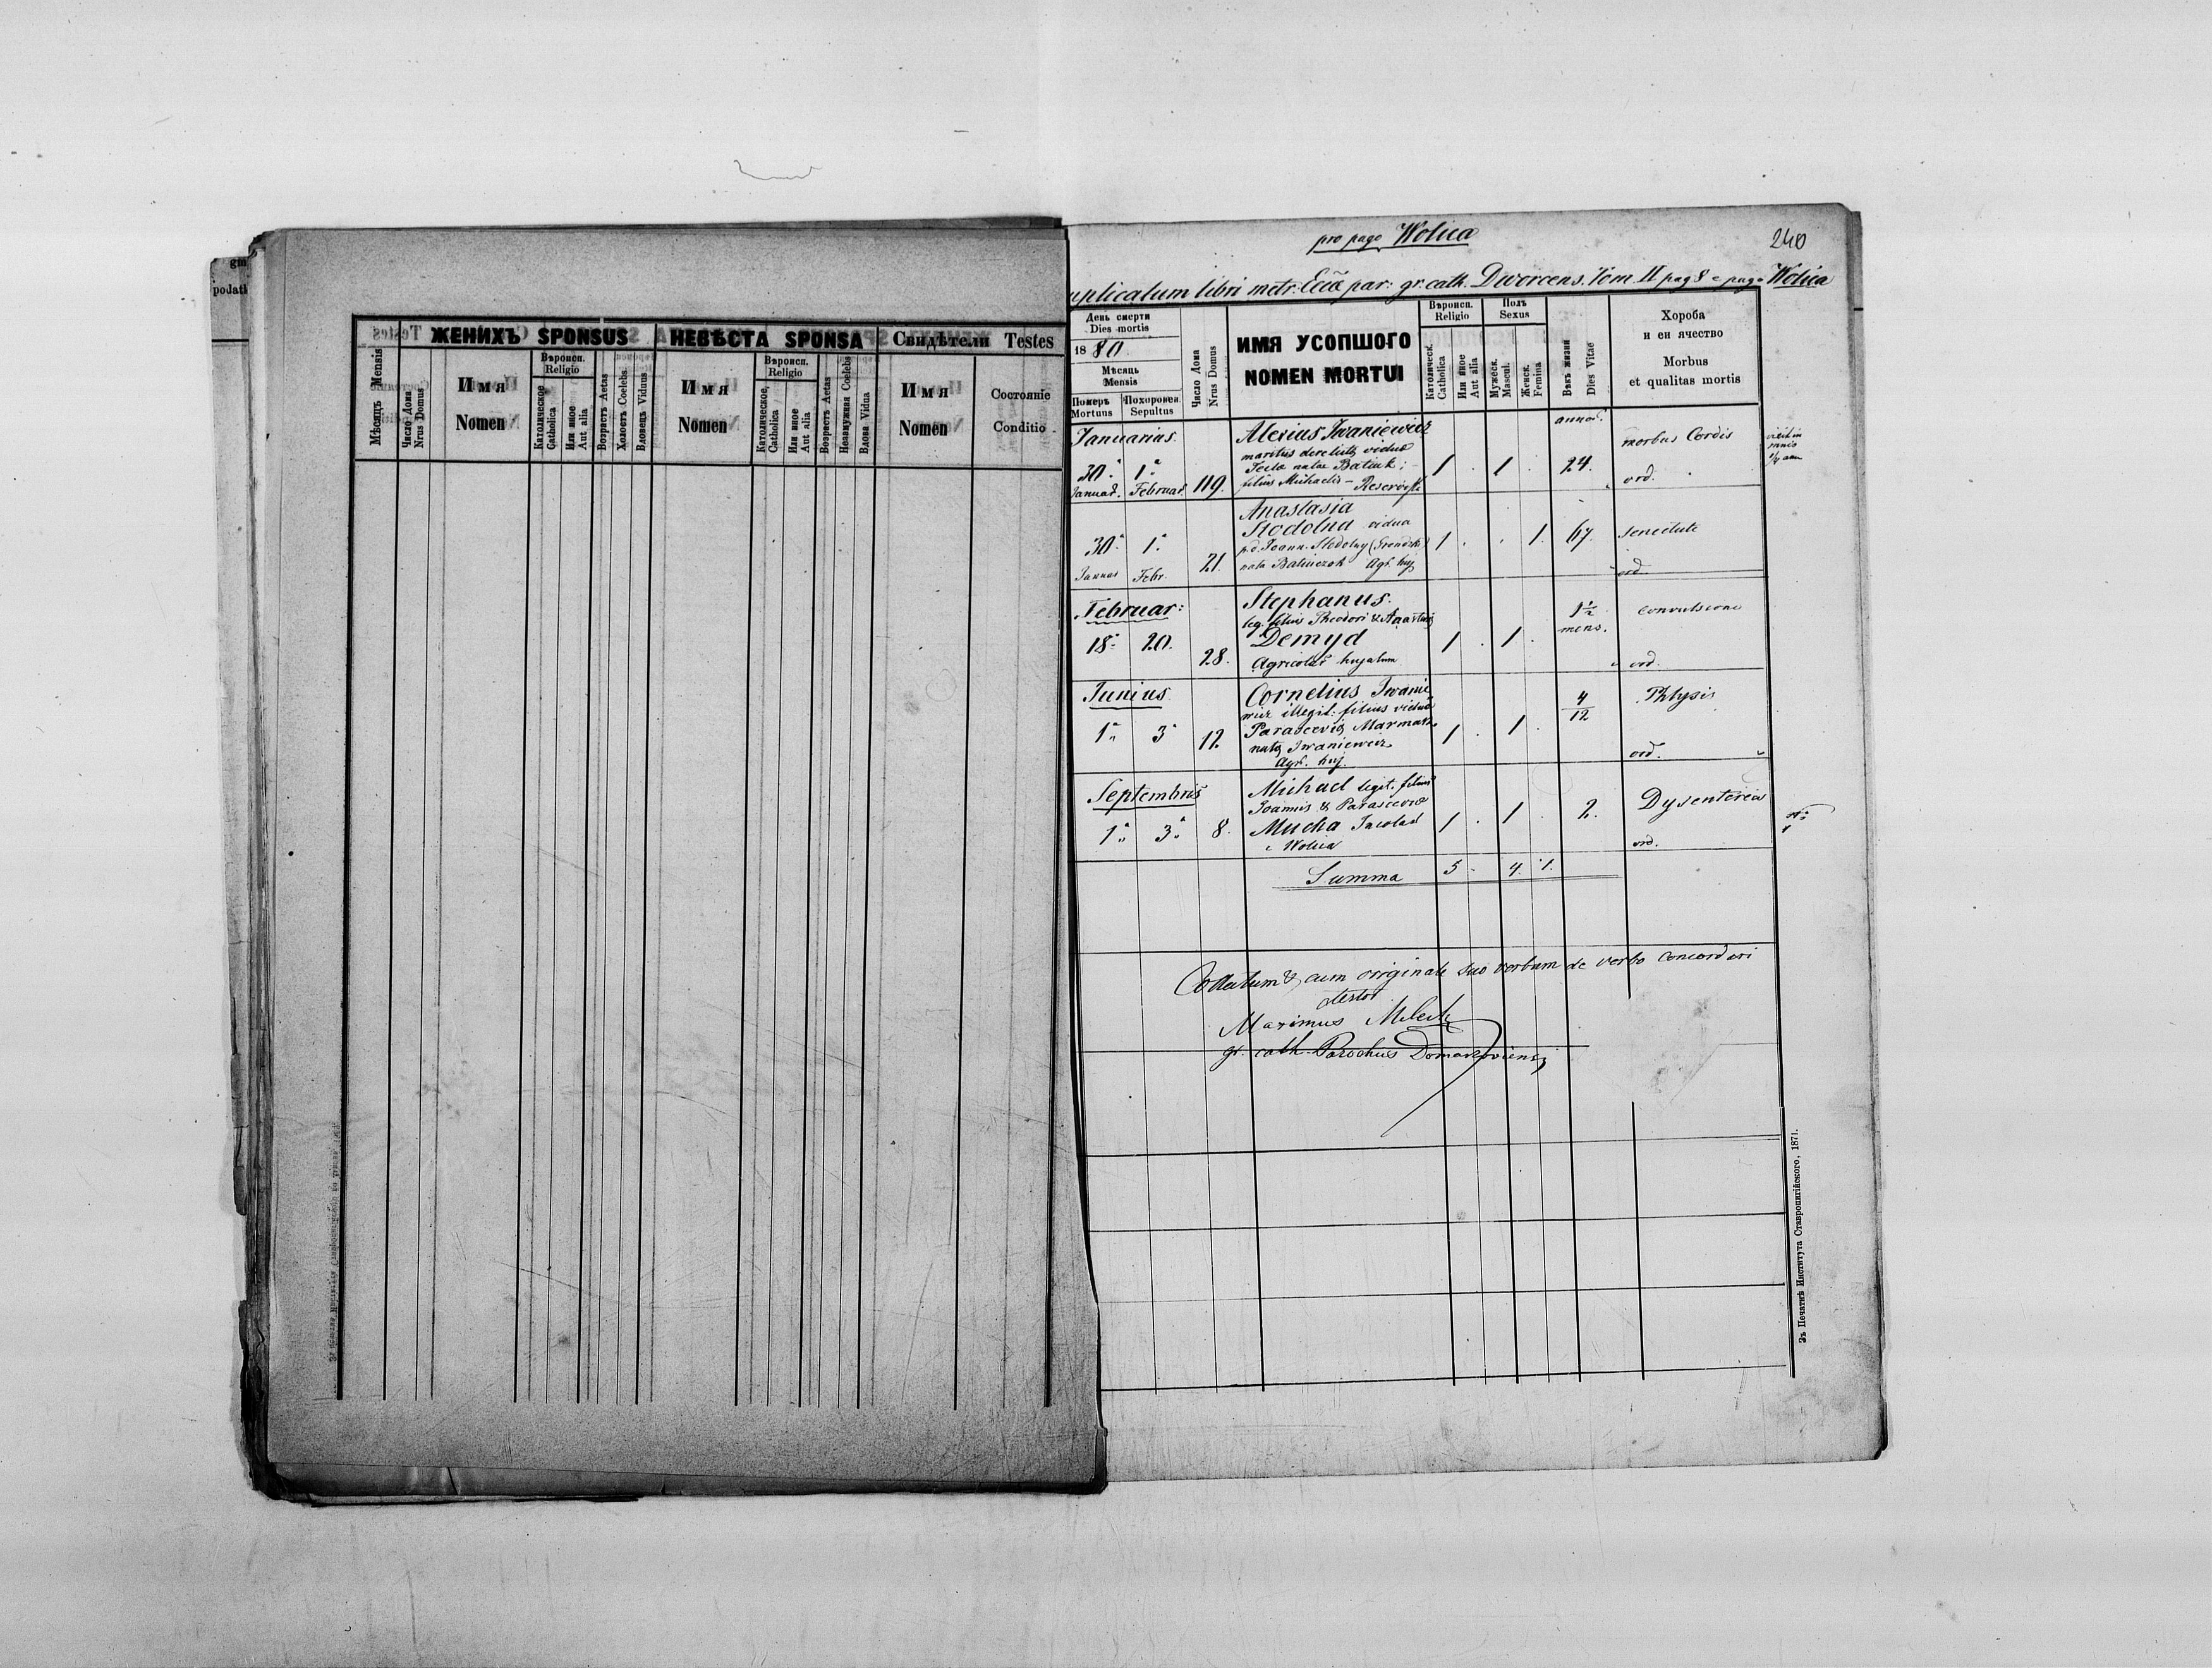 gm
podatk
ЖЕНИХЪ SPONSUS
НЕВѢСТА SPONSA
Свидѣтели Testes
Мѣсяць Mensis
Число Дома
Nrus Domus
Имя
Nomen
Вѣроисп.
Religio
Католическое
Catholica
Или иное
Aut alia
Возрастъ Aetas
Холостъ Coelebs
Вдовець Viduus
Имя
Nomen
Вѣроисп.
Religio
Католическое,
Catholica
Или иное
Aut alia
Возрастъ Aetas
Незамужная Coelebs
Вдова Vidua
Имя
Nomen
Состояніе
Conditio
pro pago Wolica
240
uplicatum libri metr. Eccl̄ae par: gr. cath. Dworcens. Tom II pag 8 pago Wolica
День смерти
Dies mortis
1880
Мѣсяць
Mensis
Померъ
Mortuus
Похоронен.
Sepultus
Число Дома
Nrus Domus
ИМЯ УСОПШОГО
NOMEN MORTUI
Вѣроисп.
Religio
Католическ.
Catholica
Или иное
Aut alia
Полъ
Sexus
Мужеск.
Mascul.
Женск.
Femina
Вѣкъ жизни
Dies Vitae
Хороба
и еи ячество
Morbus
et qualitas mortis
Januarius
30. 1.
Januar. Februar. 119.
Alexius Iwaniewicz
maritus derelictae viduae
Teclae natae Batiuk;
filius Michaelis - Reservist
1 . 1 .
annor.
24.
morbus Cordis
ord.
30. 1.
Januar Febr. 21.
Anastasia
Stodolna vidua
p.d. Joann. Stodolny
nata Balinczok Agr. huj.
1 . . 1. 67.
senectute
ord.
Februar:
18. 20. 28.
Stephanus.
leg. filius Theodori & Anastasiae
Demyd
Agricolar. hujatum
1 . 1 .
1½
mens.
convulsione
ord.
Junius
1. 3 12.
Cornelius Iwanie
wicz illegit: filius viduae
Parasceviae Marmasz
natae Iwaniewicz
Agr. huj.
1 . 1 .
4/12
Phtysis
ord.
Septembris
1. 3. 8.
Michael legit. filius
Joannis & Parasceviae
Mucha Incolae
Wolica
1 . 1 . 2.
Dysenteria
ord.
Summa 5 - 4. 1.
Collatum & cum originali suo verbum de verbo concordari
testor
Maximus
gr. cath. Parochus
Зъ Печатнѣ Института Ставропигійского, 1871.